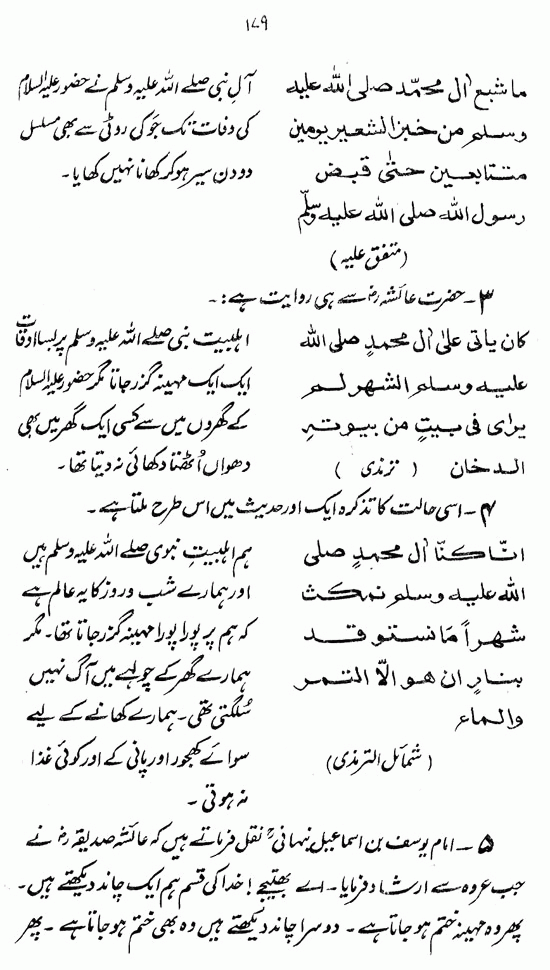 ۱۷۹
ما شبع اٰل محمّد صلی اللّٰه علیه
وسلم من خبز الشعیر یومین
متتابعین حتیٰ قبض
رسول اللّٰه صلی اللّٰه علیه وسلّم
(متفق علیہ)
آلِ نبی صلے اللہ علیہ وسلم نے حضور علیہ السلام
کی وفات تک جَو کی روٹی سے بھی مسلسل
دو دن سیر ہو کر کھانا نہیں کھایا۔
۳۔ حضرت عائشہؓ سے ہی روایت ہے:۔
کان یاتی علیٰ اٰل محمدٍ صلی اللّٰه
علیه وسلم الشهر لم
یرای فی بیتٍ من بیوتهٖ
الدخان ( ترمذی )
اہلبیت نبی صلے اللہ علیہ وسلم پر بسا اوقات
ایک ایک مہینہ گزر جاتا مگر حضور علیہ السلام
کے گھروں میں سے کسی ایک گھر میں بھی
دھواں اُٹھتا دکھائی نہ دیتا تھا۔
۴۔ اسی حالت کا تذکرہ ایک اور حدیث میں اس طرح ملتا ہے۔
انّا کنّا اٰل محمدٍ صلی
اللّٰه علیه وسلم نمکث
شهراً مَا نستوقد
بنارٍ ان هو الّا التمر
والماء
(شمائل الترمذی)
ہم اہلبیتِ نبوی صلے اللہ علیہ وسلم ہیں
اور ہمارے شب و روز کا یہ عالم ہے
کہ ہم پر پورا پورا مہینہ گزر جاتا تھا۔ مگر
ہمارے گھر کے چولہے میں آگ نہیں
سُلگتی تھی۔ ہمارے کھانے کے لیے
سوائے کھجور اور پانی کے اور کوئی غذا
نہ ہوتی۔
۵۔ امام یوسف بن اسماعیل نبہانیؒ نقل فرماتے ہیں کہ عائشہ صدیقہؓ نے
جب عروہ سے ارشاد فرمایا۔ اے بھتیجے! خدا کی قسم ہم ایک چاند دیکھتے ہیں۔
پھر وہ مہینہ ختم ہو جاتا ہے۔ دوسرا چاند دیکھتے ہیں وہ بھی ختم ہو جاتا ہے۔ پھر